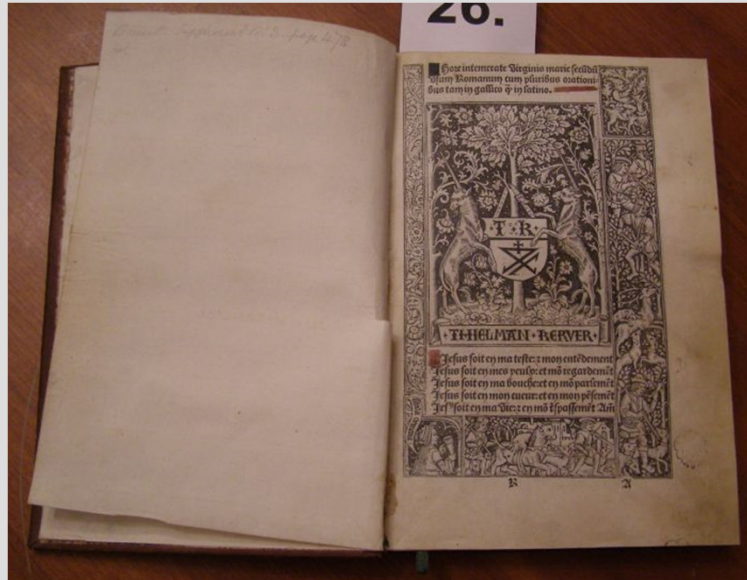 26.
Hore intemerate Virginis marie scd̃m
vsum Romanum cum pluribus orationi-
bus tam in gallico q̃ in latino.
T R
THIELMAN KERVER
Jesus soit en ma teste: ⁊ mon entẽdement
Jesus soit en mes yeulx: et mõ regardemẽt
Jesus soit en ma bouche: et en mõ parlemẽt
Jesus soit en mon cueur: et en mon pẽsemẽt
Jesus soit en ma vie: ⁊ en mõ trespassemẽt Am̃
A